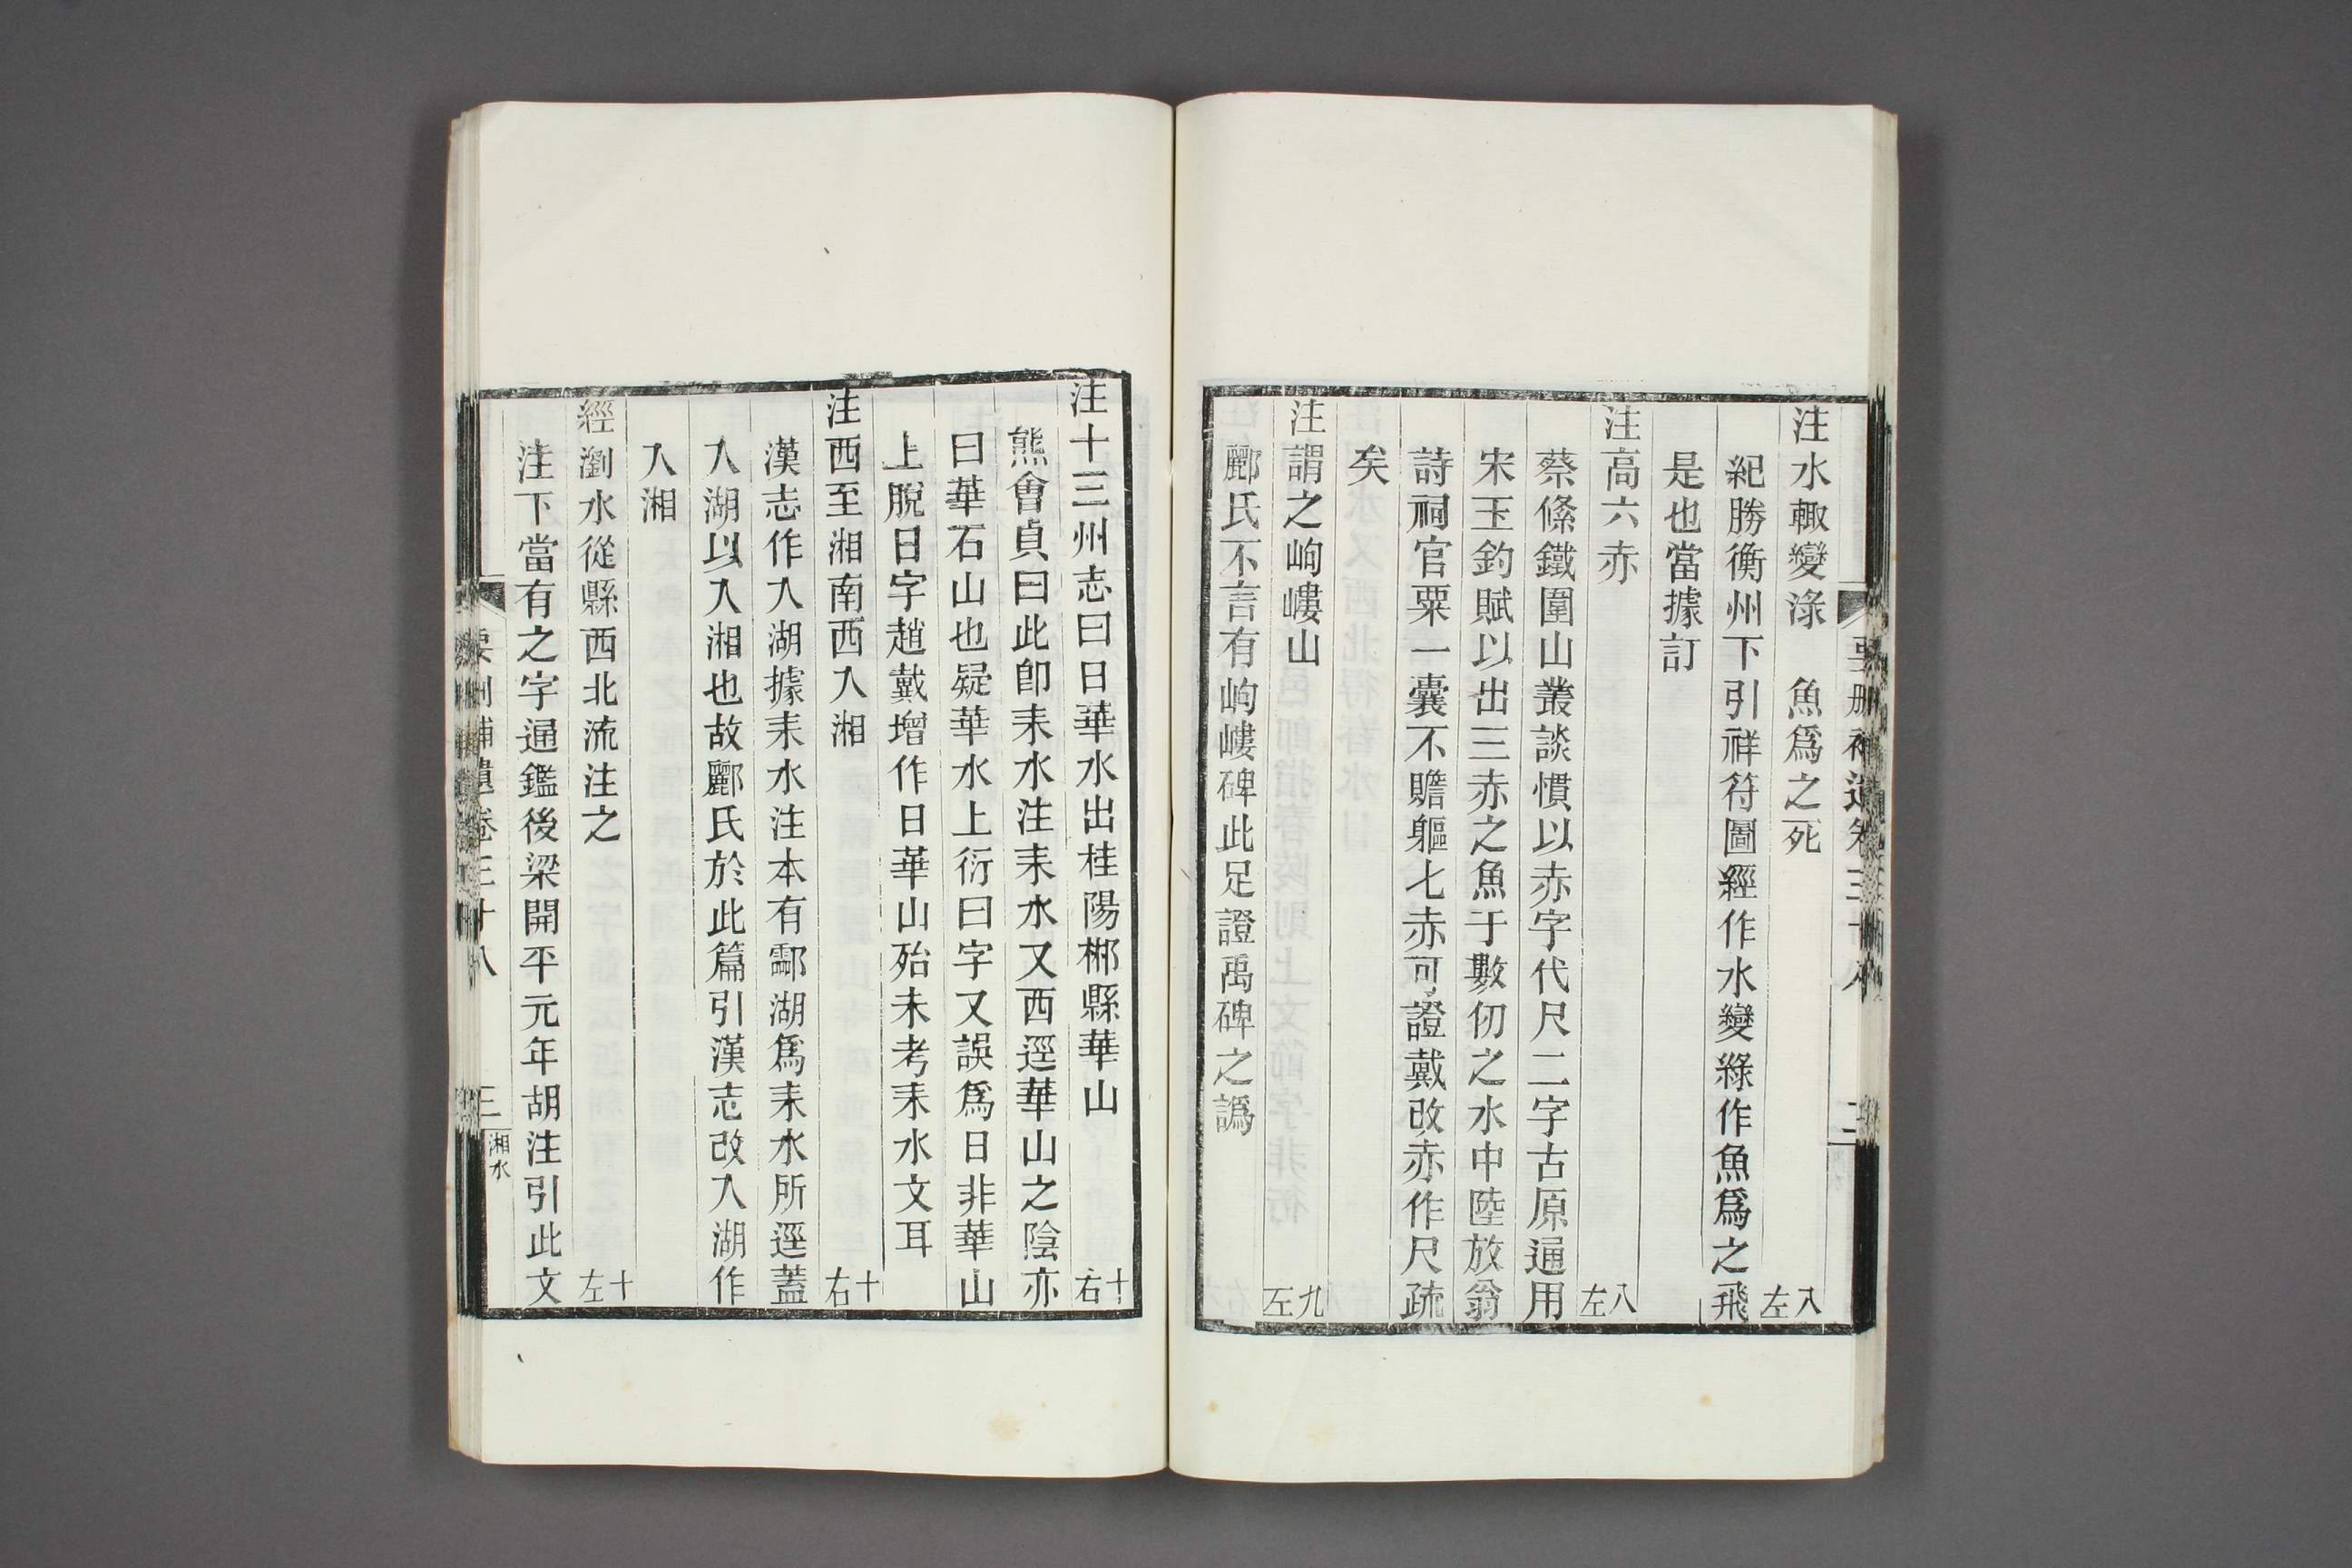 注水輙變淥　魚爲之死　八左
紀勝衡州下引祥符圖經作水變綠作魚爲之飛
是也當據訂
注高六赤　八左
蔡絛鐵圍山叢談慣以赤字代尺二字古原通用
宋玉釣賦以出三赤之魚于數仞之水中陸放翁
詩祠官粟一囊不贍軀七赤可證戴改赤作尺疏
矣
注謂之岣嶁山　九左
酈氏不言有岣嶁碑此足證禹碑之譌
注十三州志曰日華水出桂陽郴縣華山　十右
熊會貞曰此卽耒水注耒水又西逕華山之陰亦
曰華石山也疑華水上衍曰字又誤爲日非華山
上脫日字趙戴增作日華山殆未考耒水文耳
注西至湘南西入湘　十右
漢志作入湖據耒水注本有酃湖爲耒水所逕蓋
入湖以入湘也故酈氏於此篇引漢志改入湖作
入湘
經瀏水從縣西北流注之　十左
注下當有之字通鑑後梁開平元年胡注引此文
要刪補遺卷三十八
三
湘水